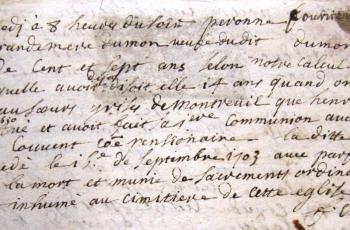 edj à 8 heures du soir peronne fournier
randemere dumon veuve dudit dumon
de Cent et sept ans selon notre calcul
quelle avoit desja disoit elle 14 ans quand on
aux sœurs grises de montreuil que henr
tué et avoit fait sa 1ere Communion au
Couvent coe pensionaire la ditte
cedé le 15e de septembre 1703 avec parf
la mort et munie de sacrements ordin
inhumé au cimitiere de cette eglise